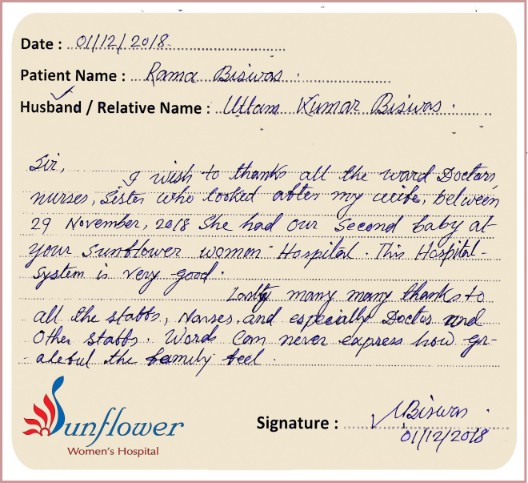 Date : 01/12/2018.
Patient Name : Rama Biswas.
Husband / Relative Name : Uttam Kumar Biswas.
Sir,
I wish to thanks all the ward Doctors,
nurses, Sister who looked after my wife, between
29 November, 2018 She had our Second baby at
your Sunflower women Hospital. This Hospital-
System is very good.
Lastly many many thanks to
all the staffs, Narses and especially Doctors and
Other staffs. Words Can never express how gr-
ateful the family feel.
Sunflower
Women's Hospital
Signature : UBiswas
01/12/2018